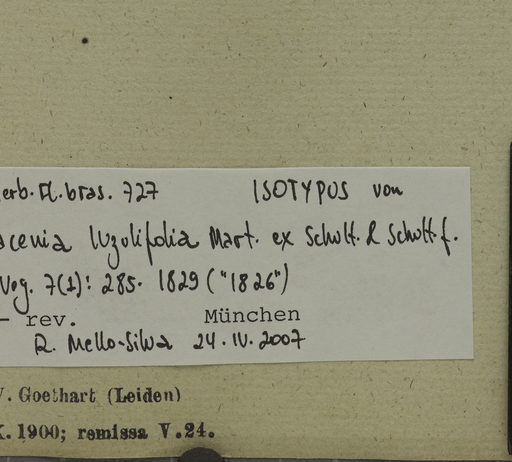 erb. Fl. bras. 727 ISOTYPUS von
acenia luzulifolia Mart. ex Schult. & Schult. f.
Veg. 7(2): 285. 1829 ("1826")
– rev. München
R. Mello-Silva 24.IV.2007
V. Goethart (Leiden)
X. 1900; remissa V.24.